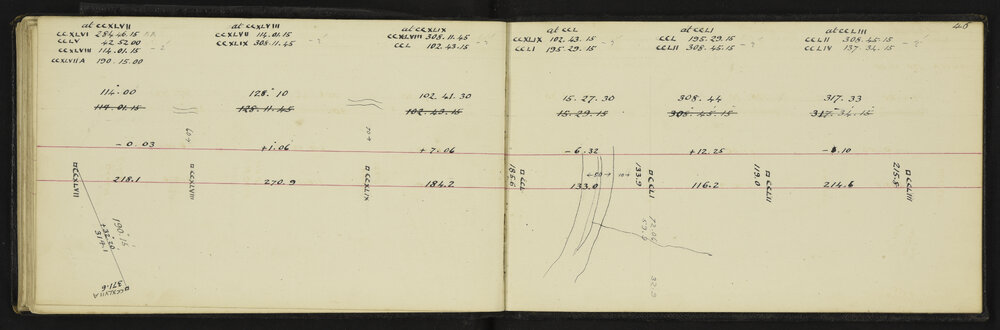 46
at CCXLVII
CCXLVI 284.46.15
CCLV 42.52.00
CCXLVIII 114.01.15
CCXLVIIA 190.15.00
at CCXLVIII
CCXLVII 114.01.15
CCXLIX 308.11.45
at CCXLIX
CCXLVIII 308.11.45
CCL 102.43.15
at CCL
CCXLIX 102.43.15
CCLI 195.29.15
at CCLI
CCL 195.29.15
CCLII 308.45.15
at CCLIII
CCLII 308.45.15
CCLIV 137.34.15
114.00
114.01.15
128.10
128.11.45
102.41.30
102.43.15
15.27.30
15.29.15
308.44
308.45.15
317.33
317.34.15
-0.03
+1.06
+7.06
-6.32
+12.25
218.1
270.9
184.2
133.0
116.2
214.6
CCXLVII
CCXLVIII
CCXLIX
185.6
CCL
133.9
CCLI
119.0
CCLII
225.5
CCLIII
190.15
+32.20
317.1
371.6
CCXLVIIA
32.9